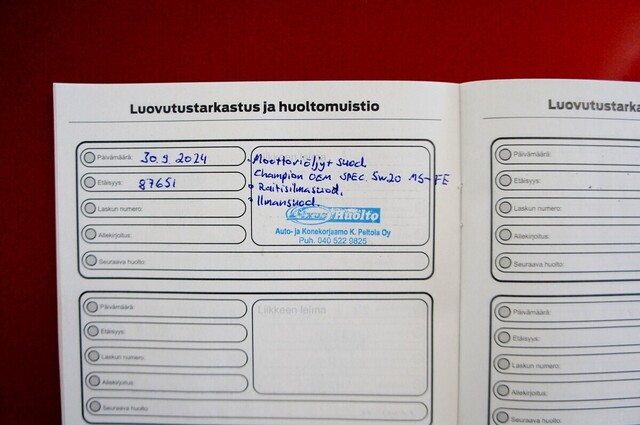 Luovutustarkastus ja huoltomuistio
Päivämäärä: 30.9.2024
Etäisyys: 87651
Laskun numero:
Allekirjoitus:
Seuraava huolto:
• Moottoriöljy + suod.
Champion OEM SPEC. 5W20 MS-FE
• Raitisilmasuod.
• Ilmansuod.
Huolto
Auto- ja Konekorjaamo K. Peltola Oy
Puh. 040 522 9825
Päivämäärä:
Etäisyys:
Laskun numero:
Allekirjoitus:
Seuraava huolto:
Liikkeen leima
Luovutustarka
Päivämäärä:
Etäisyys:
Laskun numero:
Allekirjoitus:
Seuraava huolto:
Päivämäärä:
Etäisyys:
Laskun numero:
Allekirjoitus:
Seuraava huolto: